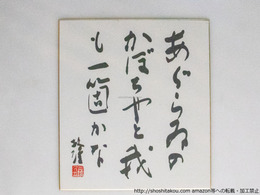 あぐらゐの
かぼちやと我
も一箇かな
http://shoshitakou.com amazon等への転載・加工禁止